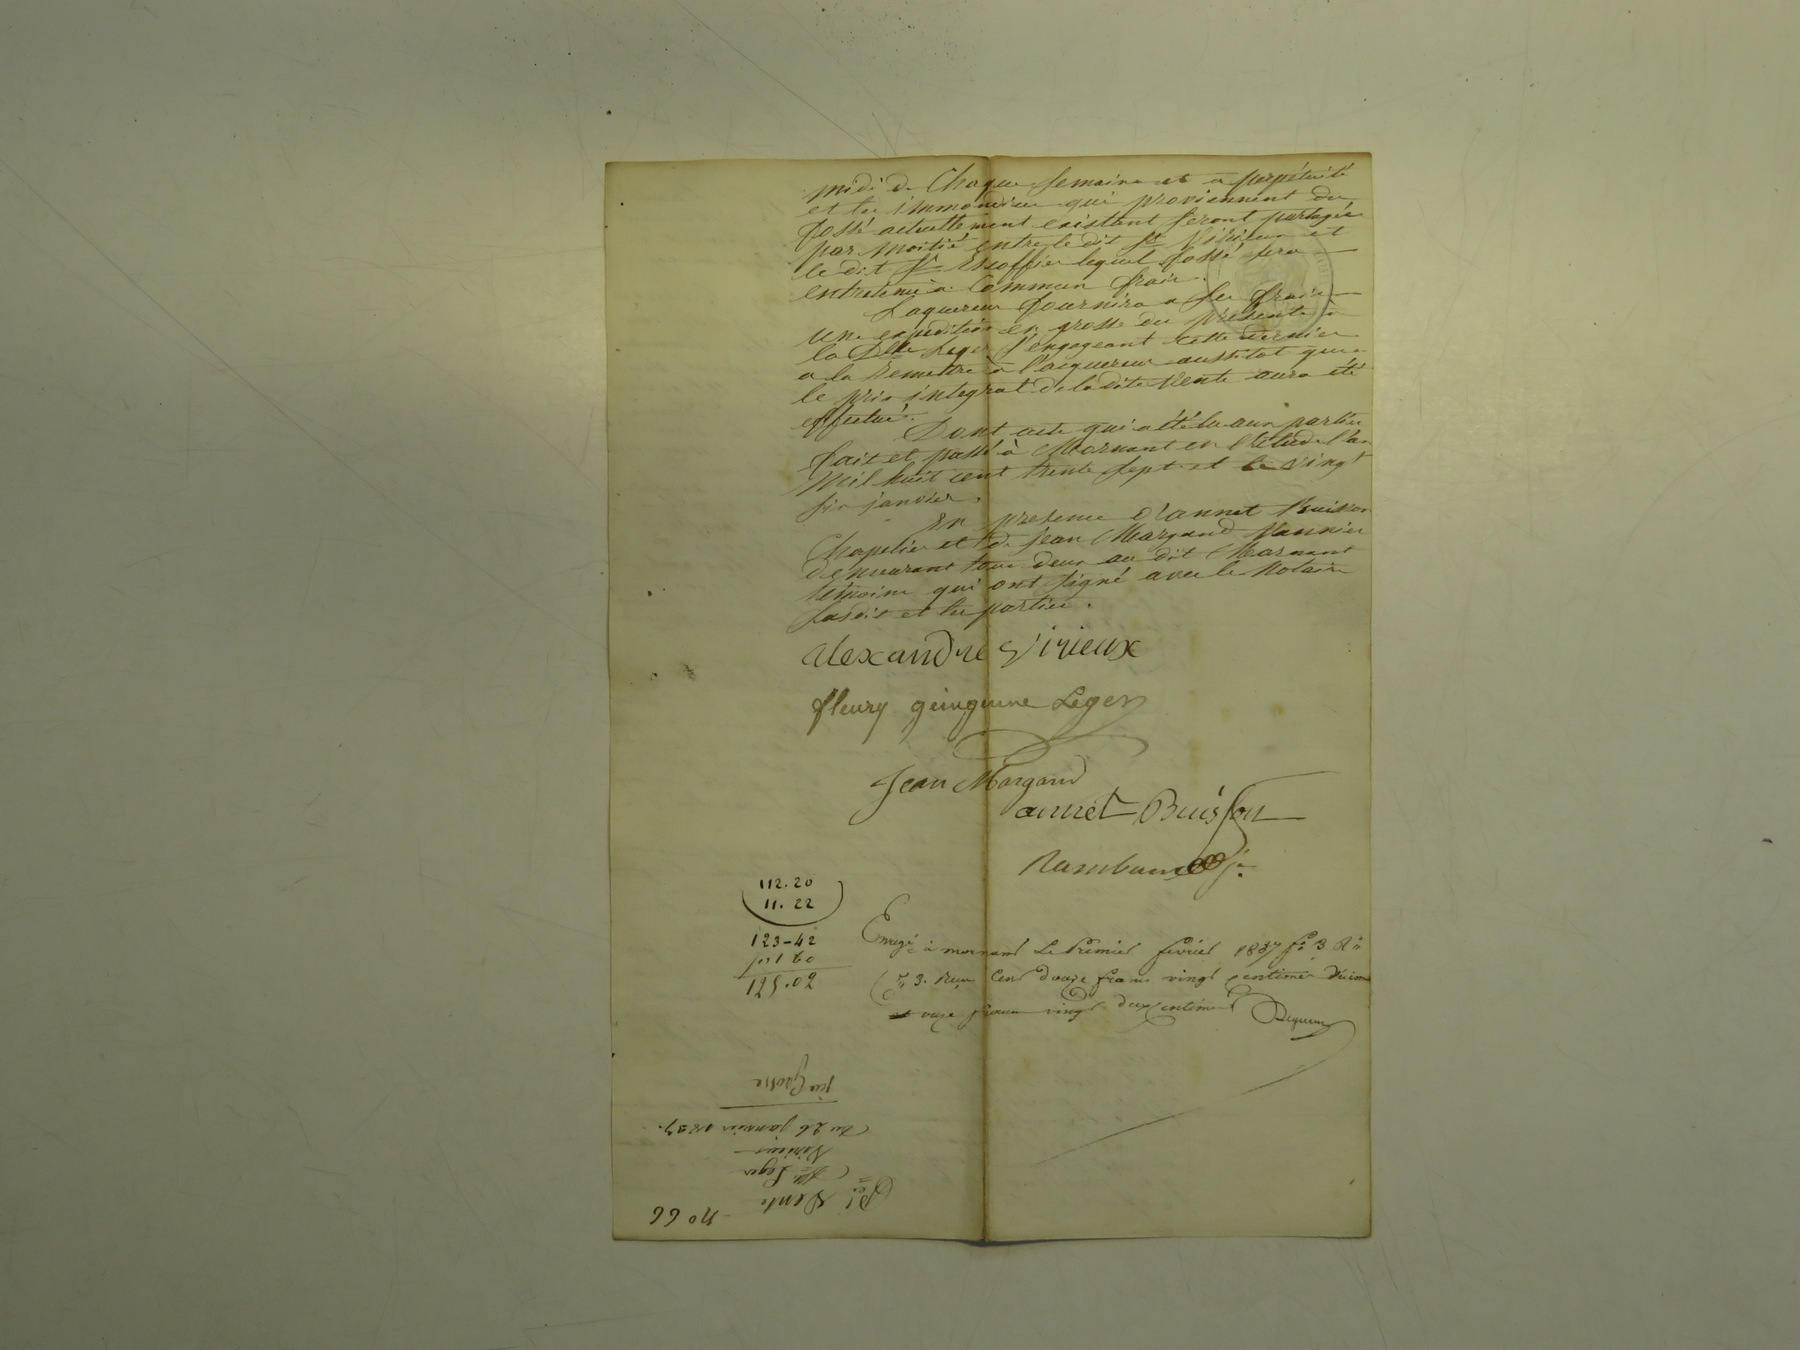 midi de Chaque semaine et a perpétuité
et les immondices qui proviennent du
fossé actuellement existant seront partagés
par moitié entre le dit Sr Virieux et
le dit Sr Escoffier lequel fossé sera
entretenu a Commun frais.
Laquereur fournira a ses frais
une expedition en grosse des présentes à
la Dlle Leger s'engageant cette dernier
a la remettre à l'acquereur aussitot que
le prix integral de la dite Vente aura été
effectué.
Dont acte qui a été lu aux parties
fait et passé à Mornant en l'Etude l'an
Mil huit cent trente sept et le vingt
six janvier.
En presence d'annet Buisson
Chapelier et de Jean Margand Vannier
demeurant tous deux au dit Mornant
témoins qui ont signé avec le Notaire
susdit et les parties.
alexandre Virieux
fleury Leger
Jean Margand
annet Buisson
112.20
11.22
123-42
1 60
125.02
Enregé à mornant Le Premier fevrier 1837 fo 3 Ro
Ce 3. Reçu Cent douze francs vingt centimes Dixième
onze francs vingt deux centimes
No 66
Vente
Dlle Leger
Virieux
Du 26 janvier 1837.
Grosse